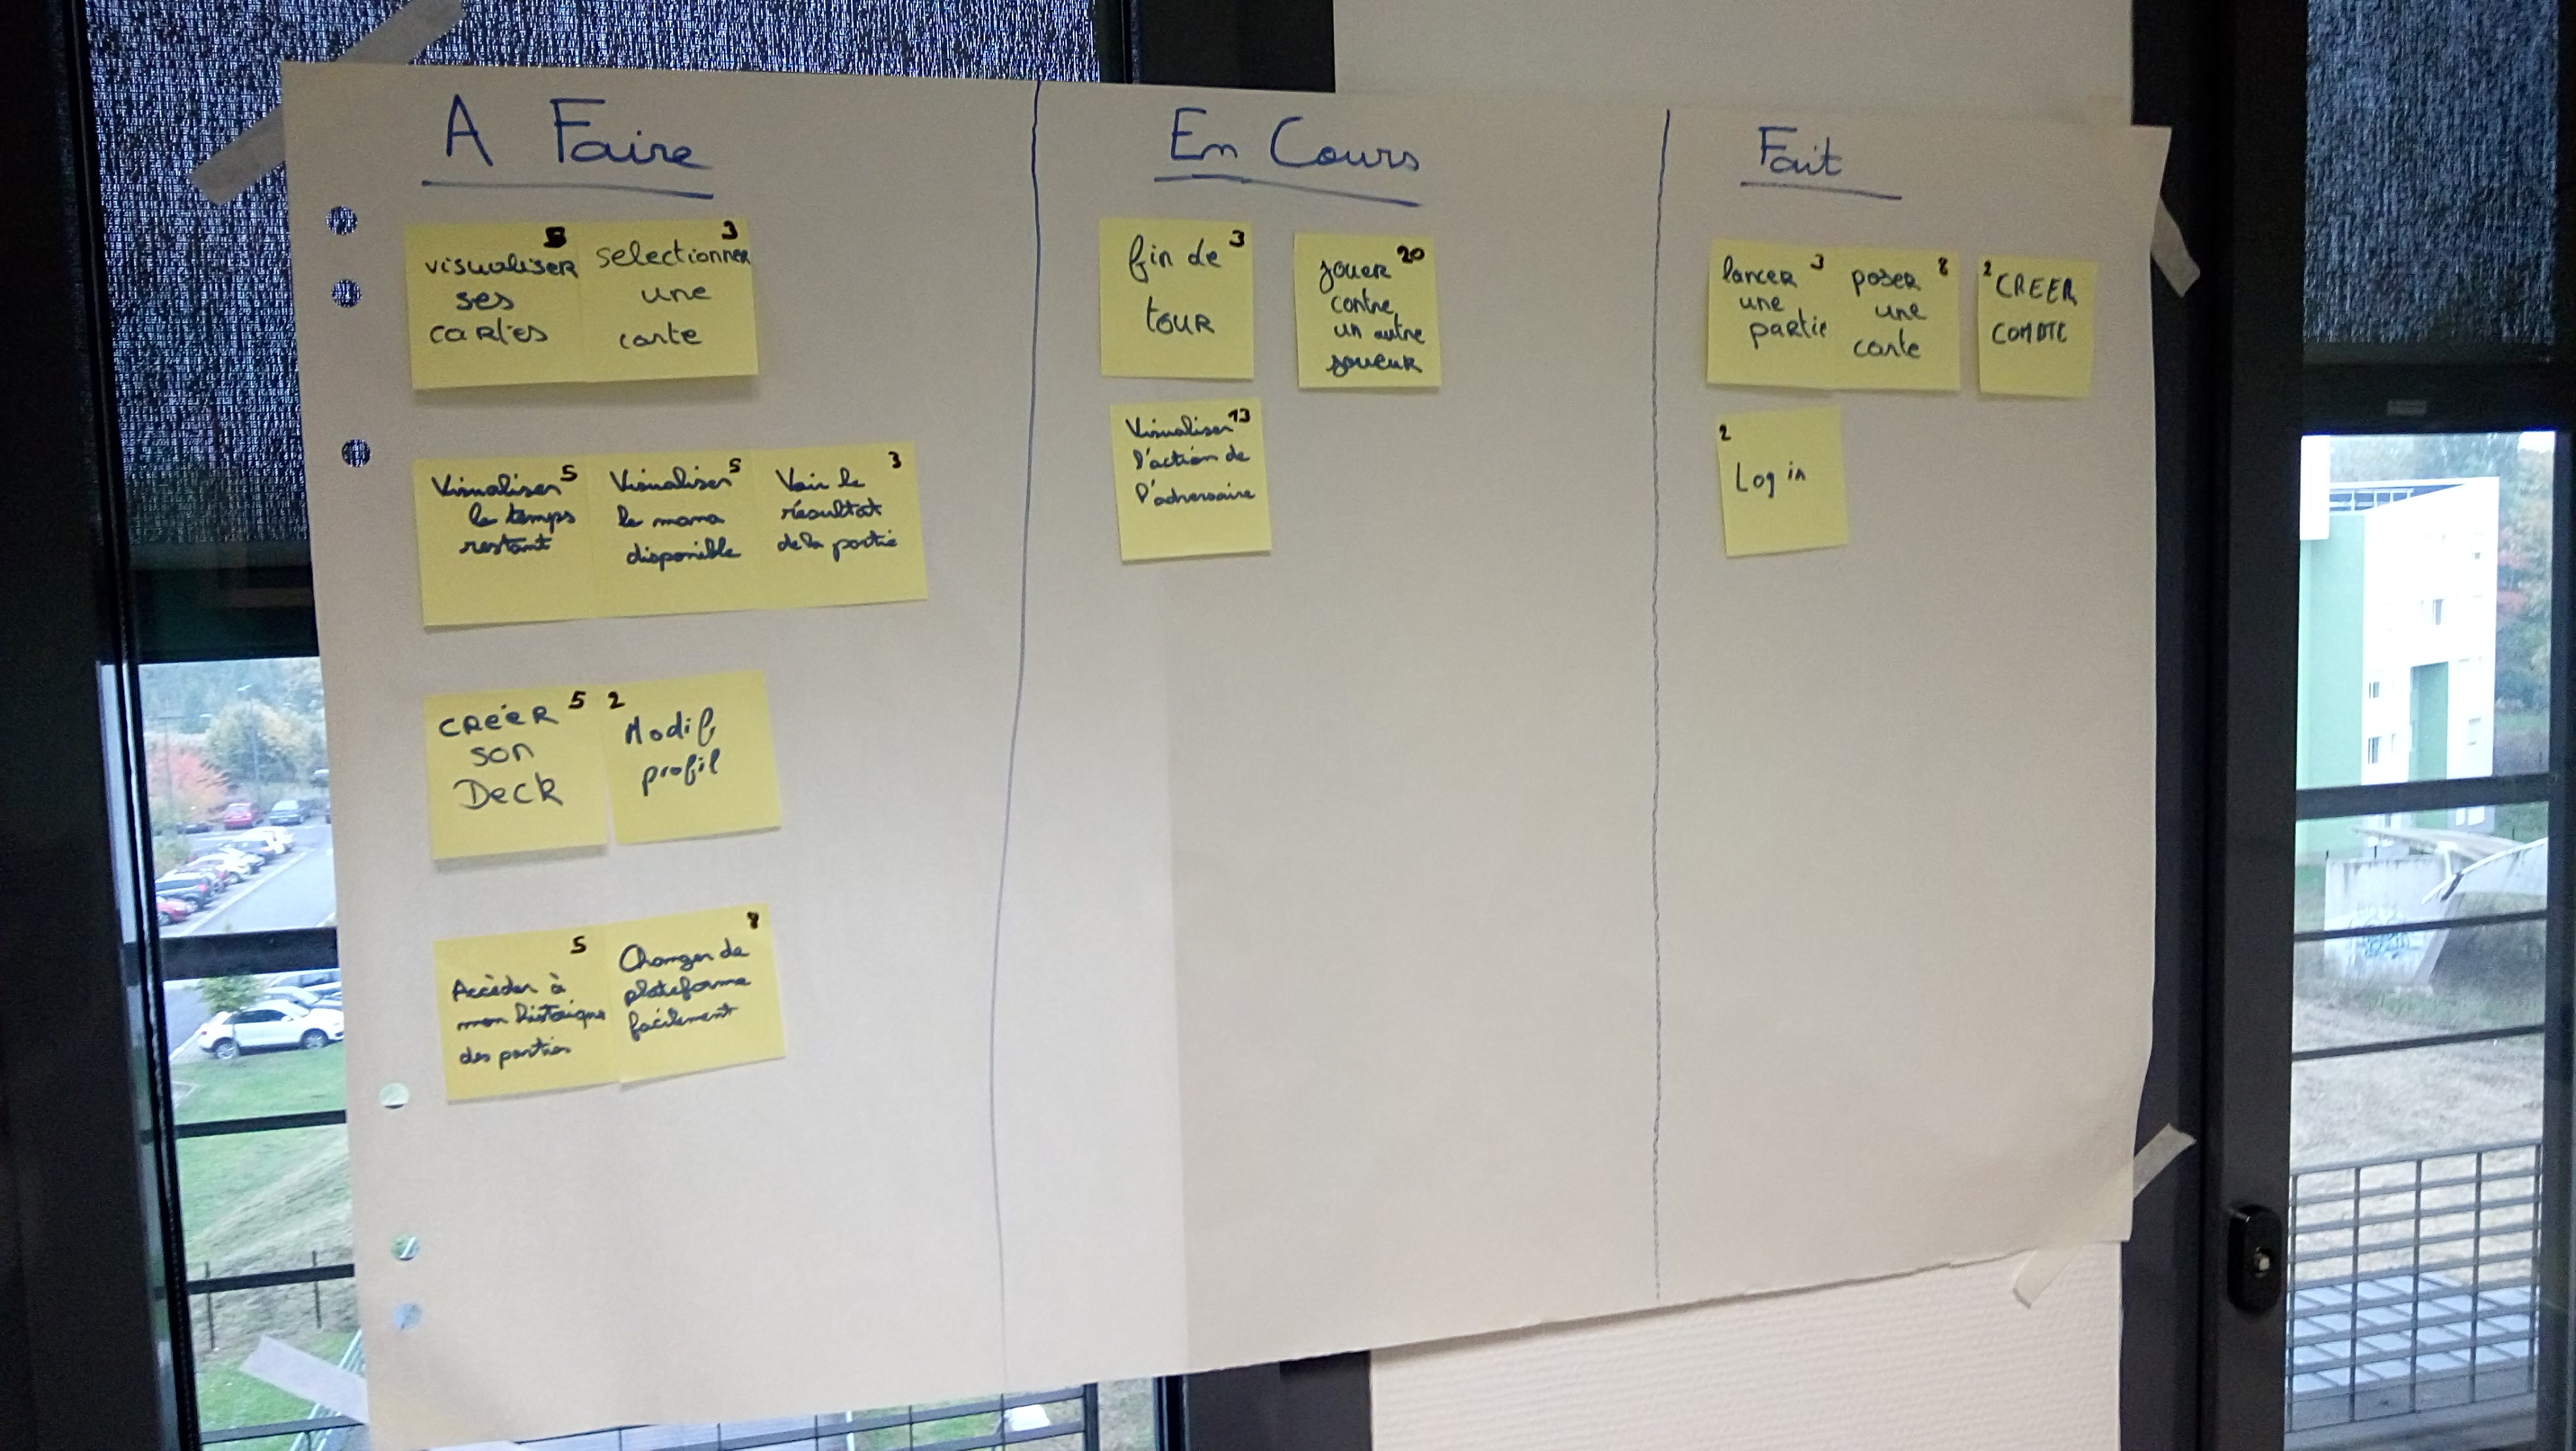 A Faire
visualiser
ses
cartes
3
selectionner
une
carte
5
Visualiser
le temps
restant
5
Visualiser
le mana
disponible
3
Voir le
résultat
de la partie
5
CRÉER
son
Deck
2
Modif
profil
5
Accéder à
mon historique
des parties
8
Changer de
plateforme
facilement
En Cours
3
fin de
tour
20
jouer
contre
un autre
joueur
13
Visualiser
l'action de
l'adversaire
Fait
3
lancer
une
partie
8
poser
une
carte
2
CREER
COMPTE
2
Log in